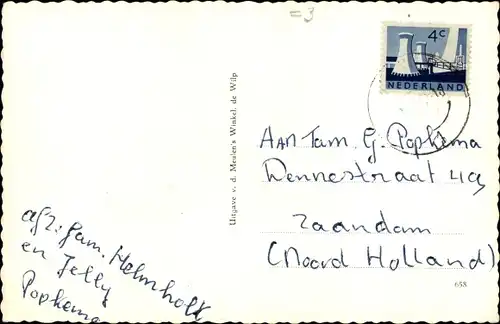 =3
4c
NEDERLAND
Uitgave v. d. Meulen's Winkel. de Wilp
Aan Fam. G. Popkema
Dennestraat 49
Zaandam
(Noord Holland)
afz. fam. Helmholt
en Jelly
Popkema
658